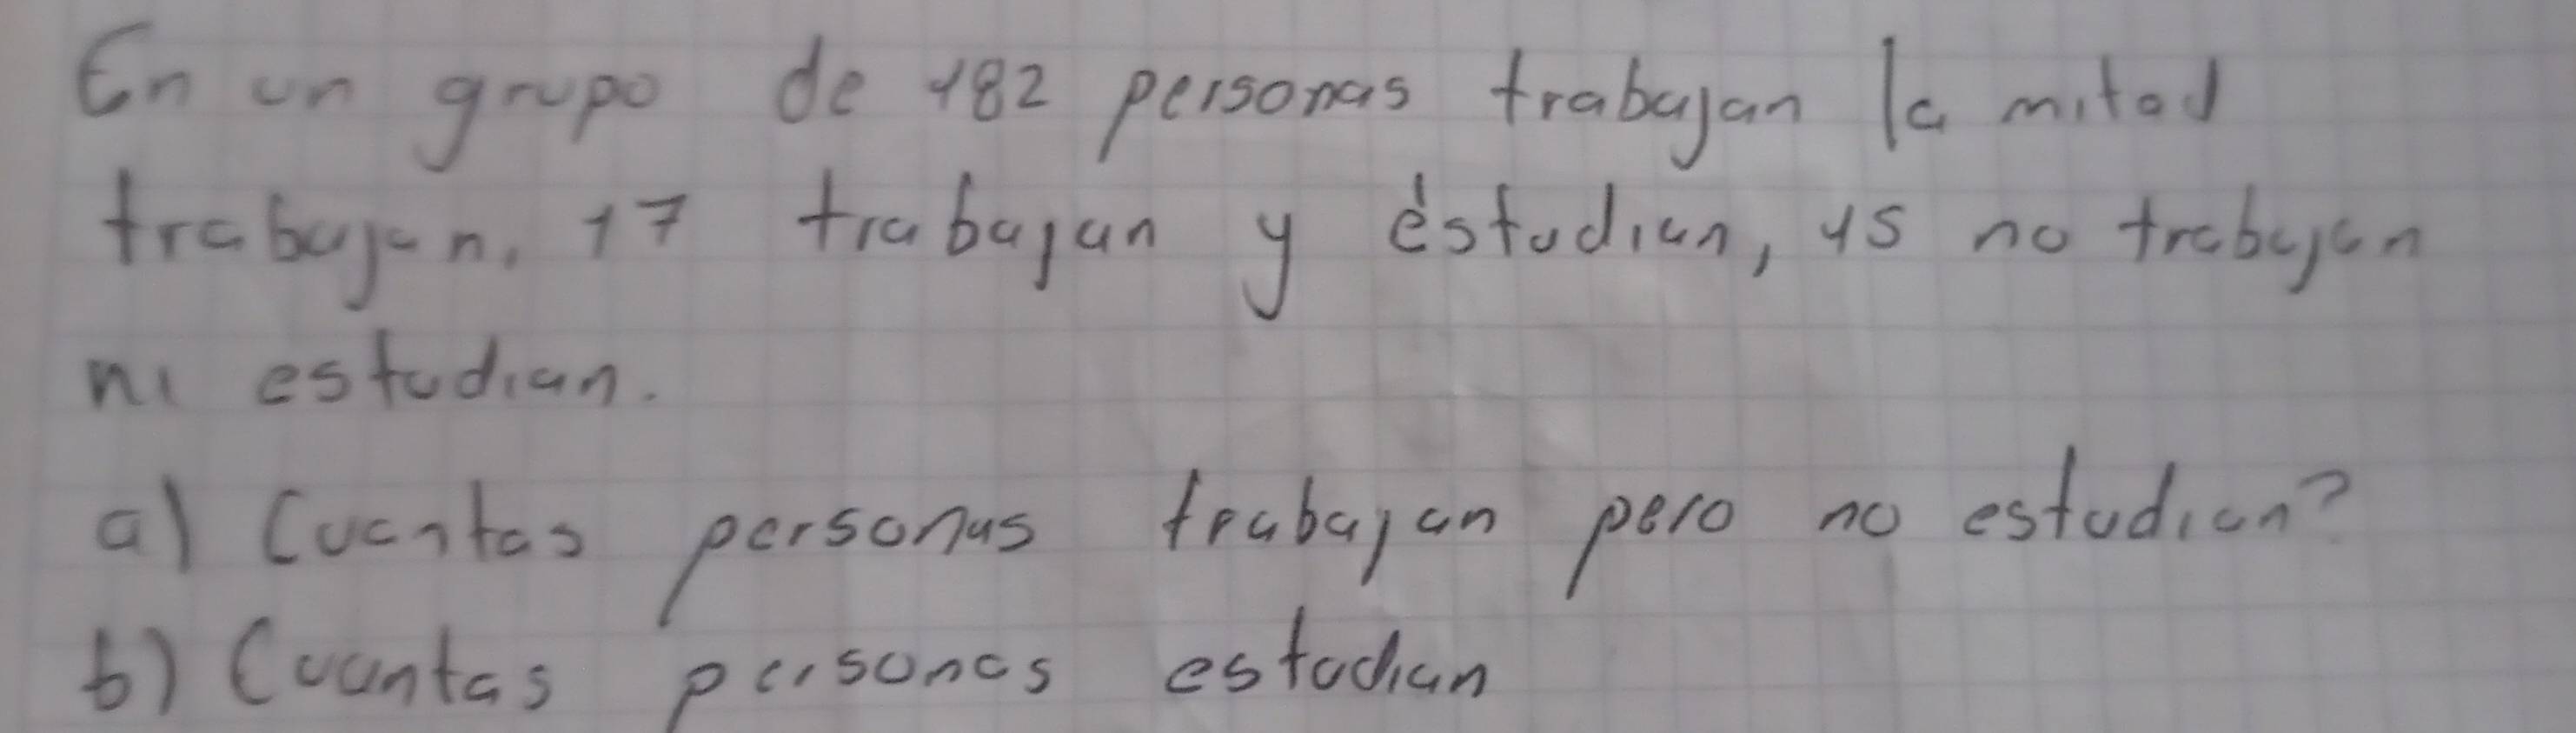 En un grupo de 182 personas trabajan la mitad
trabajan, 17 trabajan y éstudian, 15 no trabajan
ni estudian.
a) Cuantas personas trabajan pero no estudian?
b) Cuantas personas estudian